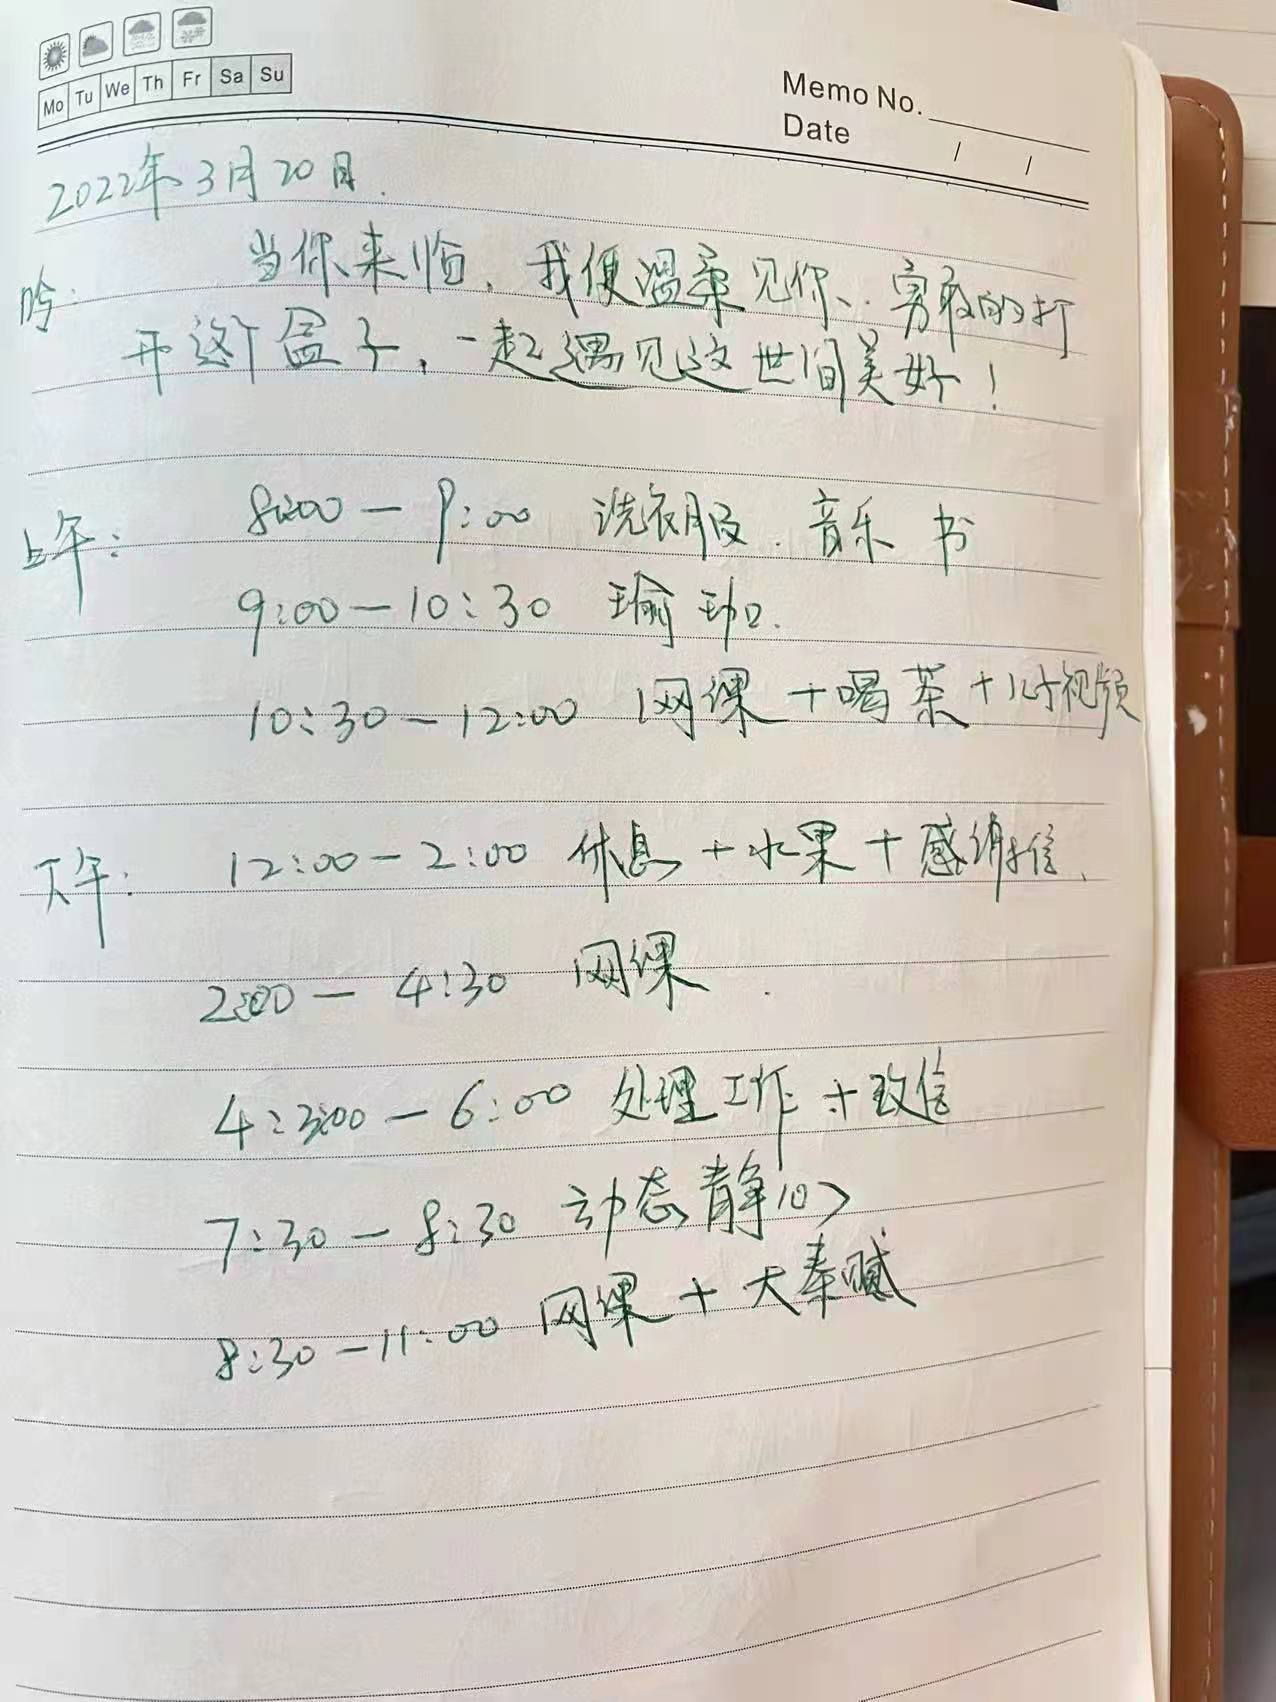 Mo Tu We Th Fr Sa Su
Memo No.
Date / /
2022年3月20日.
吟: 当你来临，我便温柔见你、勇敢的打
开这个盒子，一起遇见这世间美好！
上午: 8:00 — 9:00 洗衣服、音乐 书
9:00 — 10:30 瑜珈.
10:30 — 12:00 网课 + 喝茶 + 视频
下午: 12:00 — 2:00 休息 + 水果 + 感
2:00 — 4:30 网课.
4:30 — 6:00 处理工作 + 致信
7:30 — 8:30 动态静心
8:30 — 11:00 网课 + 大秦赋